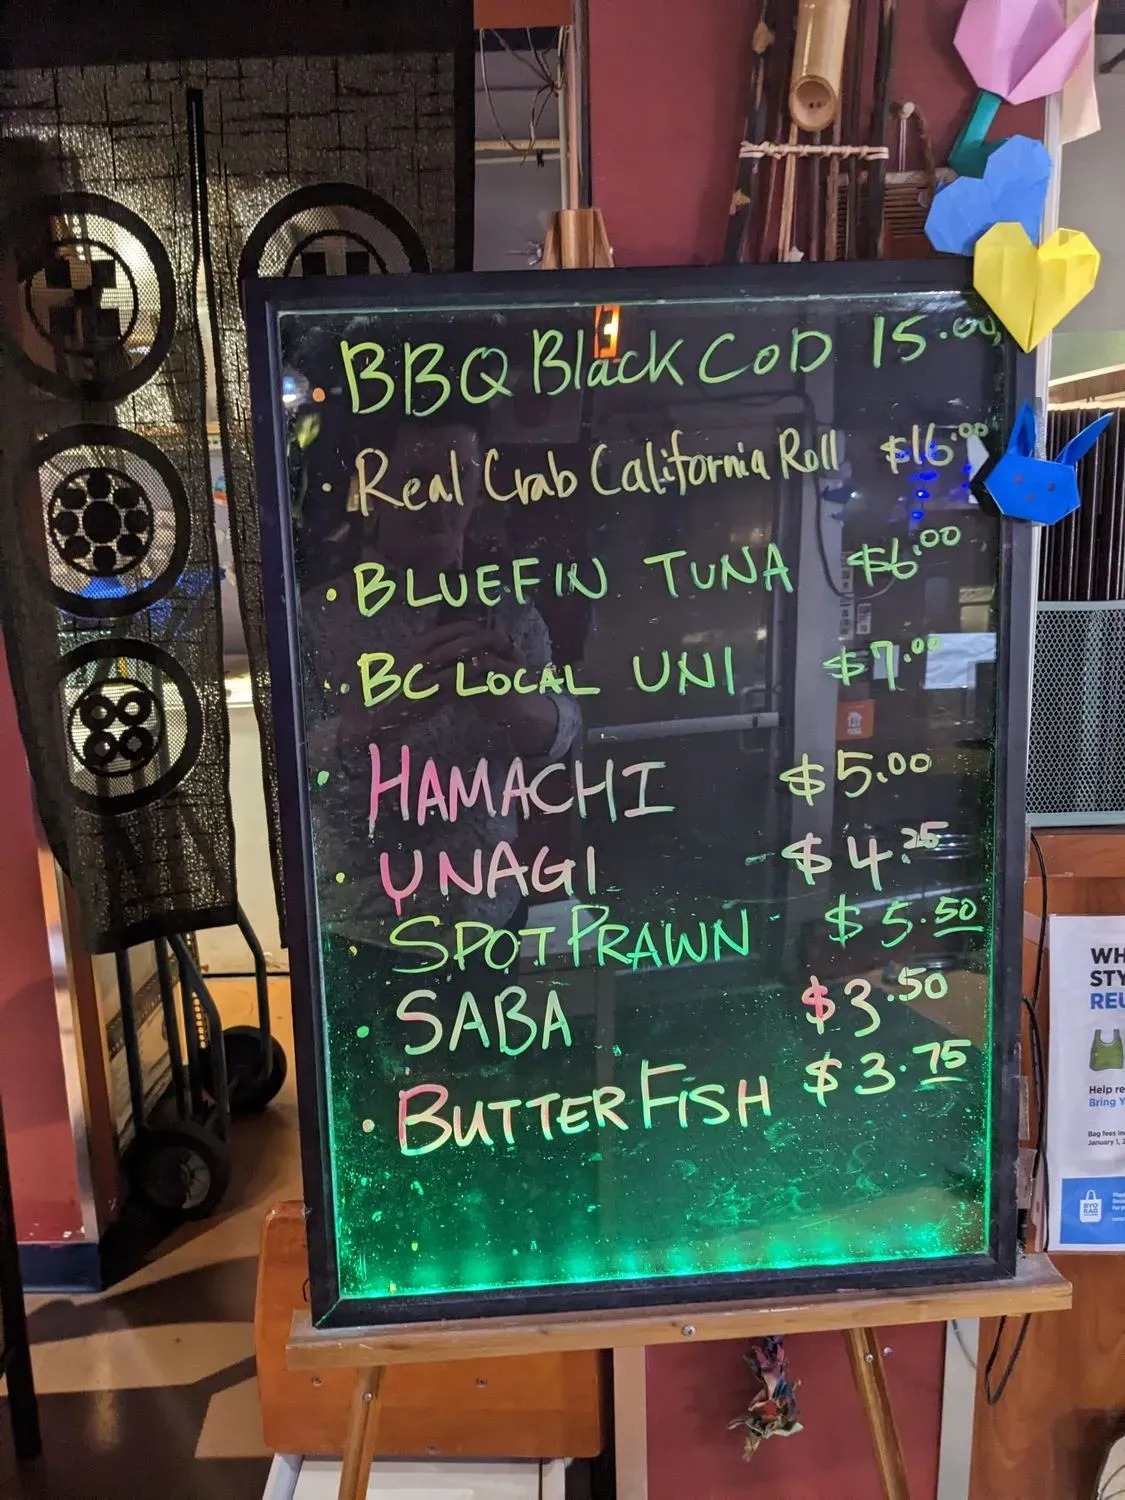 BBQ Black COD 15.00
Real Crab California Roll $16.00
BLUEFIN TUNA $6.00
BC LOCAL UNI $7.00
HAMACHI $5.00
UNAGI $4.25
SPOT PRAWN $5.50
SABA $3.50
BUTTERFISH $3.75
WH
STY
REU
Help re
Bring Y
Bag fees in
January 1, 2
BYO
BAG